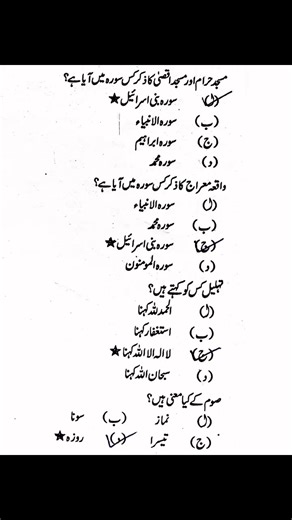 مسجد حرام اور مسجد اقصیٰ کا ذکر کس سورہ میں آیا ہے؟
(ا) سورہ بنی اسرائیل ★
(ب) سورہ الانبیاء
(ج) سورہ ابراہیم
(د) سورہ محمد
واقعہ معراج کا ذکر کس سورہ میں آیا ہے؟
(ا) سورہ الانبیاء
(ب) سورہ محمد
(ج) سورہ بنی اسرائیل ★
(د) سورہ المومنون
تہلیل کس کو کہتے ہیں؟
(ا) الحمد للہ کہنا
(ب) استغفار کہنا
(ج) لا الہ الا اللہ کہنا ★
(د) سبحان اللہ کہنا
صوم کے کیا معنی ہیں؟
(ا) نماز (ب) سونا
(ج) تیسرا (د) روزہ ★